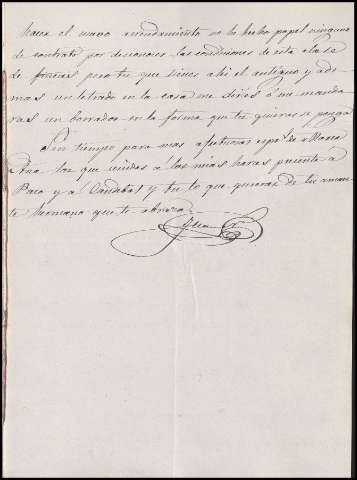 hacer el nuevo arrendamiento no he hecho papel ninguno
de contrato por desconocer las condiciones de esta clase
de fincas pero tu que tienes ahi el antiguo y ade-
mas un letrado en la casa me dirás ó me manda-
ras un borrador en la forma que tu quieres se ponga
Sin tiempo para mas afectuosas esp.s de Maria
Ana las que unidas á las mias haras presente á
Paca y a y tu lo que quieras de tu aman-
te hermano que te abraza
Juan